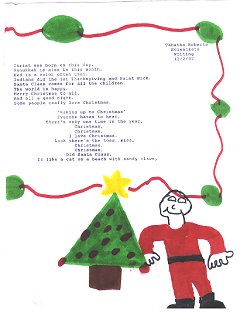 Tabatha Roberts
Writing
12/2/97
Christ was born on this day,
Hanukkah is also in this month.
Red is a color often used.
Indians did the 1st Thanksgiving and Saint Nick.
Santa Claus comes for all the children.
The world is happy.
Merry Christmas to all,
And all a good night.
Some people really love Christmas.
"Waking up to Christmas"
Everyone hates to hear,
There's only one time in the year,
Christmas,
Christmas,
I love Christmas.
Look there's the toes..
Christmas,
Christmas,
Old Santa Claus,
Is like a cat on a beach with sandy claws,